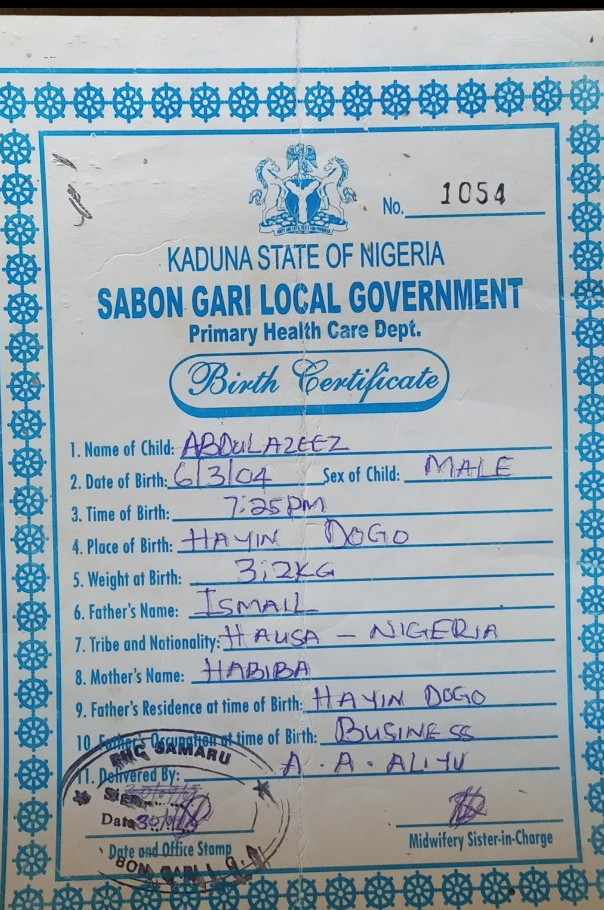 No. 1054
KADUNA STATE OF NIGERIA
SABON GARI LOCAL GOVERNMENT
Primary Health Care Dept.
Birth Certificate
1. Name of Child: ABDULAZEEZ
2. Date of Birth: 6/3/04 Sex of Child: MALE
3. Time of Birth: 7:25PM
4. Place of Birth: HAYIN DOGO
5. Weight at Birth: 3:2KG
6. Father's Name: ISMAIL
7. Tribe and Nationality: HAUSA - NIGERIA
8. Mother's Name: HABIBA
9. Father's Residence at time of Birth: HAYIN DOGO
10. Father's Occupation at time of Birth: BUSINESS
11. Delivered By: A. A. ALIYU
SAMARU
Sign
Date
Date and Office Stamp
Midwifery Sister-in-Charge